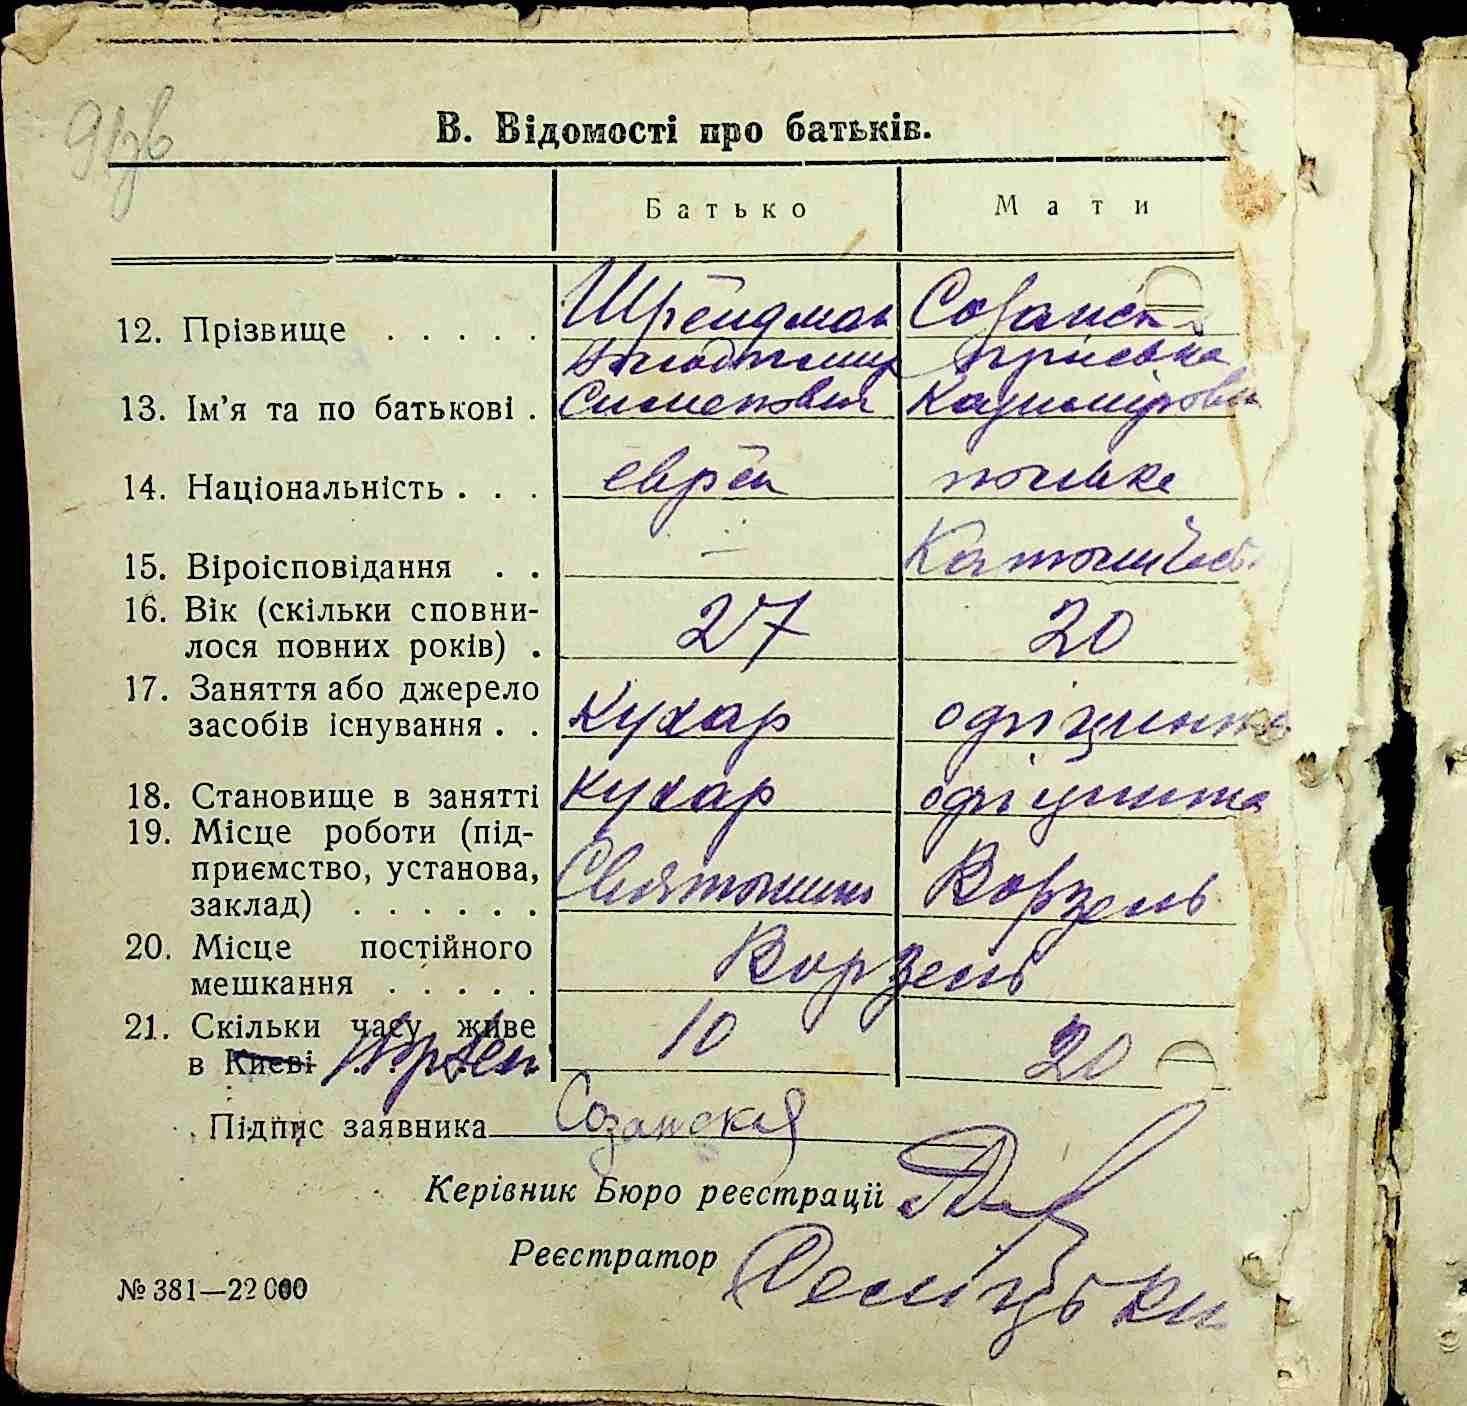 В. Відомості про батьків.
Батько Мати
12. Прізвище . . . . . Шрейдман Созанск
13. Ім’я та по батькові . Семенович Казимировн
14. Національність . . . еврей полька
15. Віроісповідання . . — Католическ
16. Вік (скільки сповни-
лося повних років) . 27 20
17. Заняття або джерело
засобів існування . . Кухар офіціантка
18. Становище в занятті кухар офіціантка
19. Місце роботи (під-
приємство, установа,
заклад) . . . . . . Святошино Ворзель
20. Місце постійного
мешкання . . . . . Ворзель
21. Скільки часу живе
в Києві Ворзель 10 20
Підпис заявника Созанская
Керівник Бюро реєстрації
Реєстратор
№ 381—22 000